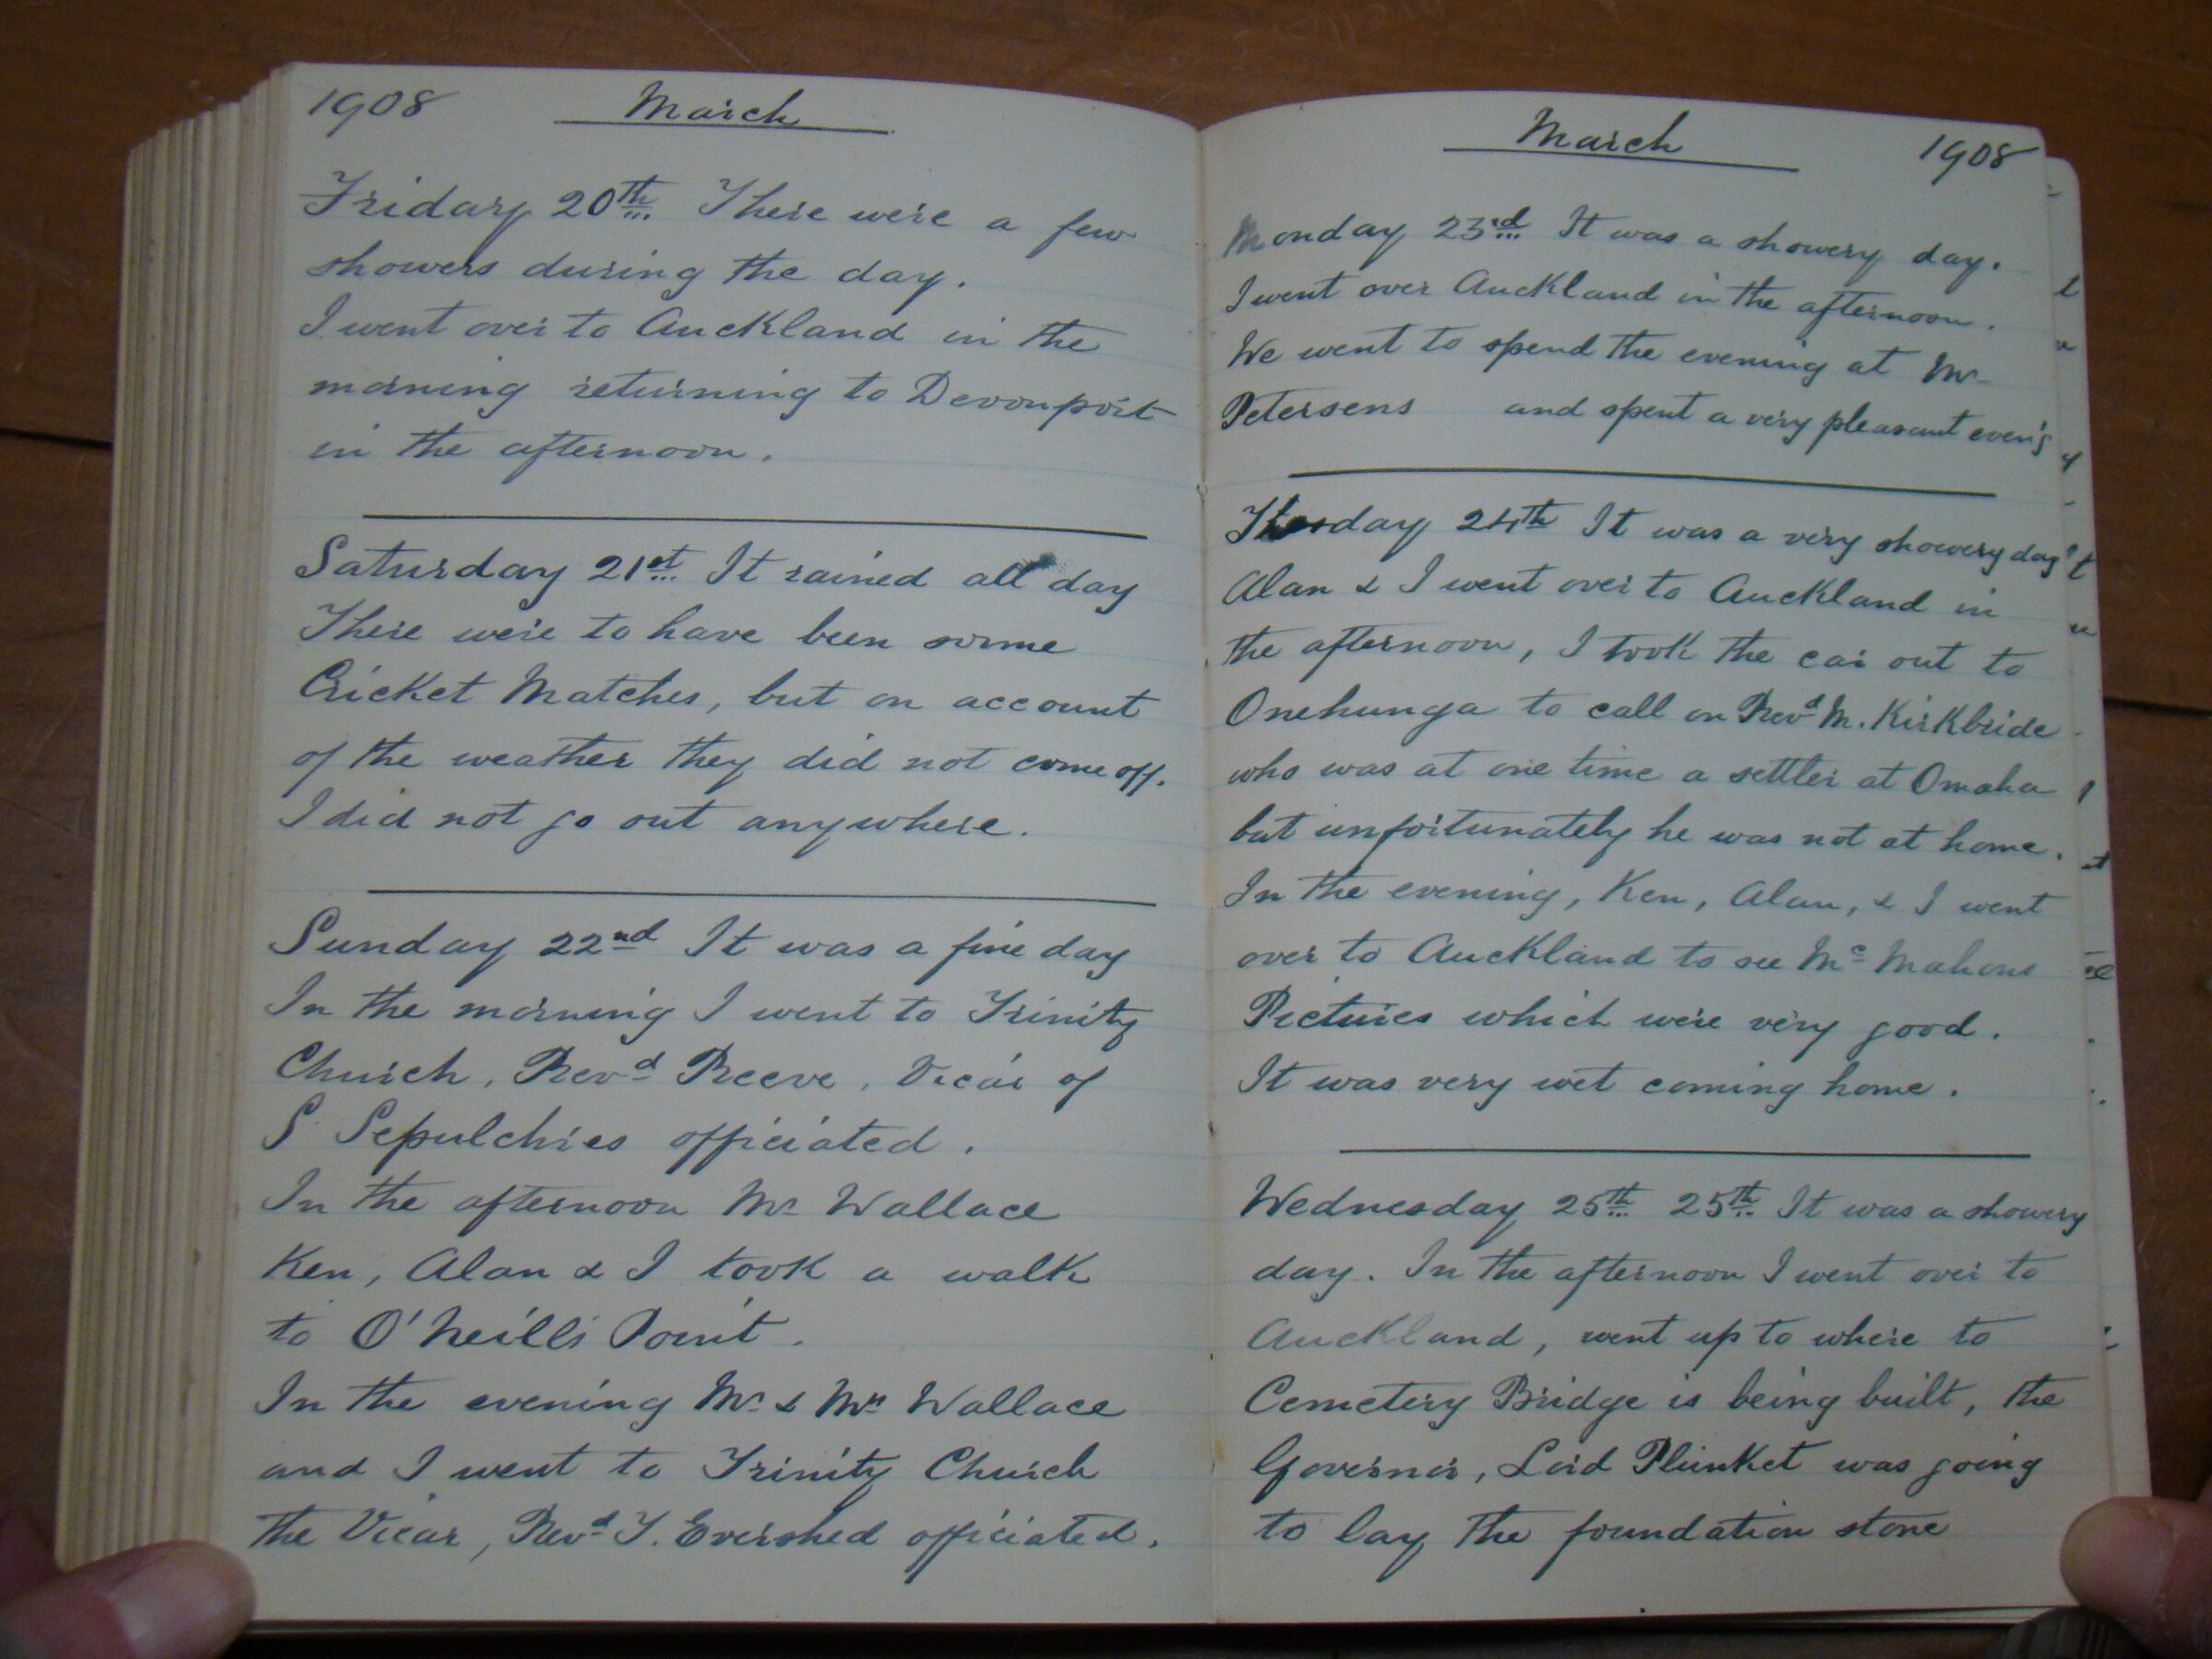 1908 March
Friday 20th There were a few
showers during the day.
I went over to Auckland in the
morning returning to Devonport
in the afternoon.
Saturday 21st It rained all day
There were to have been some
Cricket Matches, but on account
of the weather they did not come off.
I did not go out anywhere.
Sunday 22nd It was a fine day
In the morning I went to Trinity
Church, Revd Reeve, Vicar of
S Sepulchres officiated.
In the afternoon Mr Wallace
Ken, Alan & I took a walk
to O'Neills Point.
In the evening Mr & Mrs Wallace
and I went to Trinity Church
the Vicar, Revd T. Evershed officiated.
March 1908
Monday 23rd It was a showery day.
I went over Auckland in the afternoon.
We went to spend the evening at Mr
Petersens and spent a very pleasant even'g
Tuesday 24th It was a very showery day
Alan & I went over to Auckland in
the afternoon, I took the car out to
Onehunga to call on Revd M. Kirkbride
who was at one time a settler at Omaha
but unfortunately he was not at home.
In the evening, Ken, Alan, & I went
over to Auckland to see Mc Mahons
Pictures which were very good.
It was very wet coming home.
Wednesday 25th 25th It was a showery
day. In the afternoon I went over to
Auckland, went up to where to
Cemetery Bridge is being built, the
Governor, Lord Plunket was going
to lay the foundation stone